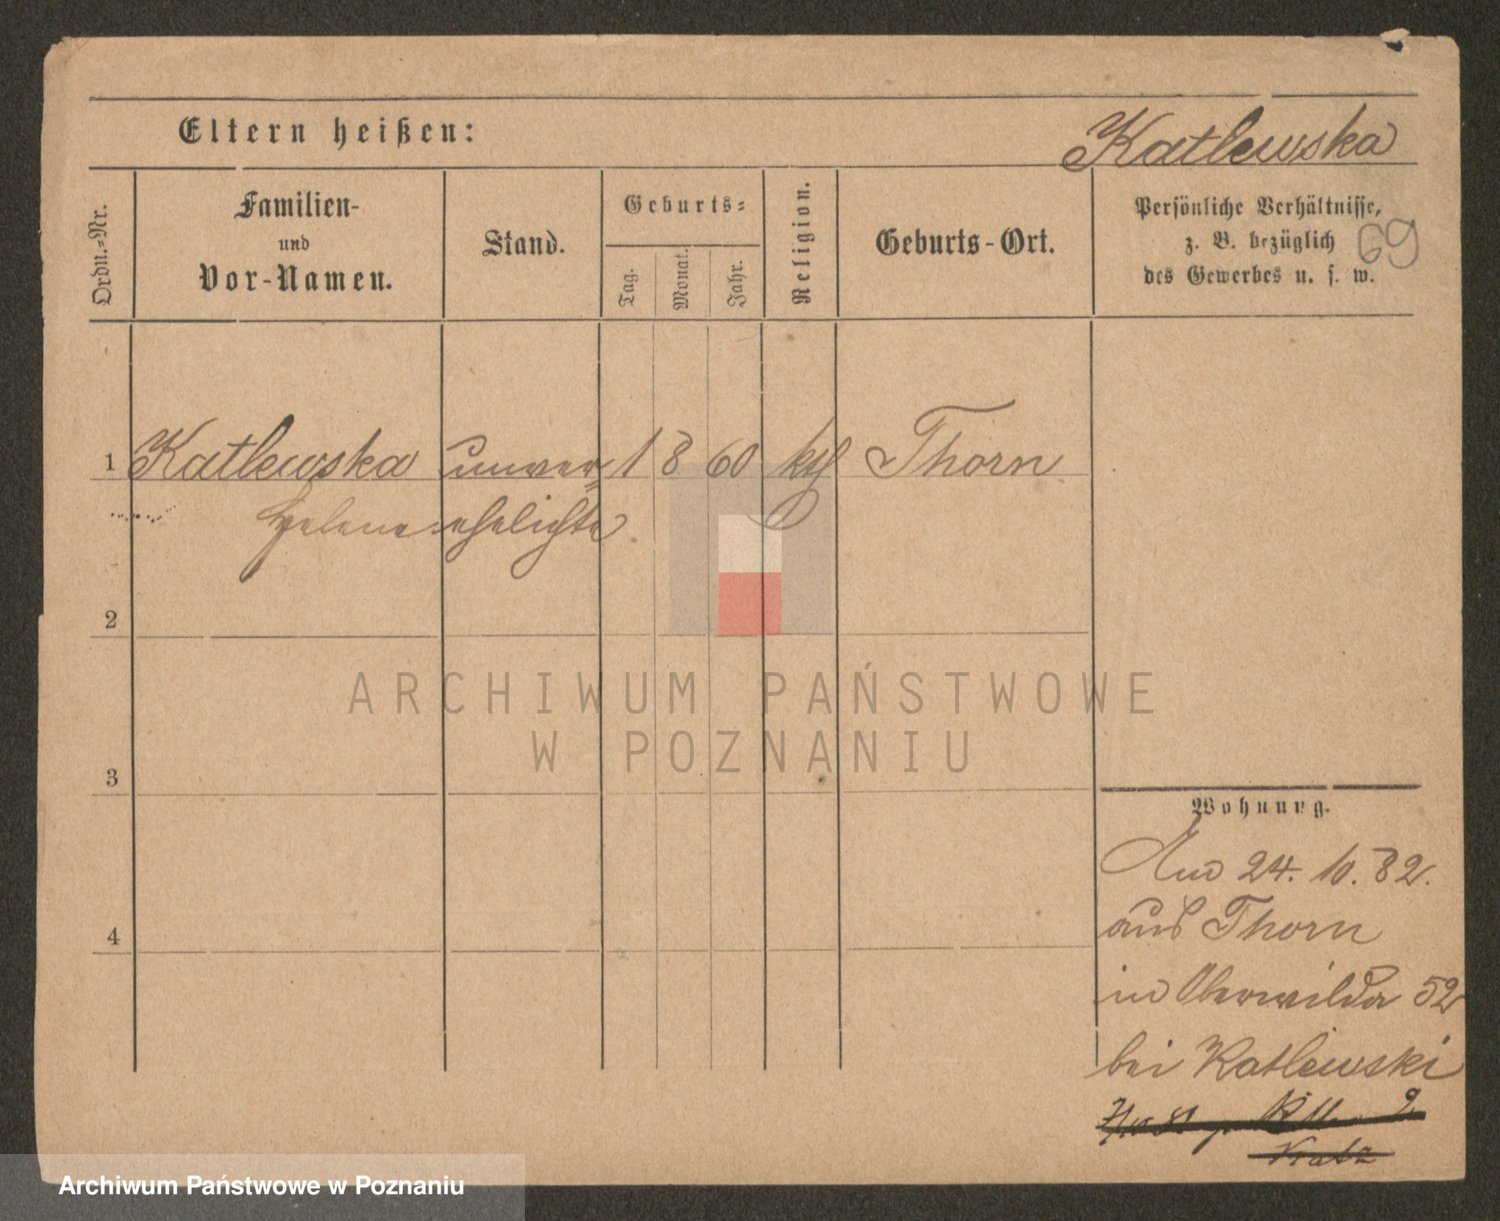 Eltern heißen:
Katlewska
Ordn.-Nr.
Familien-
und
Vor-Namen.
Stand.
Geburts-
Tag.
Monat.
Jahr.
Religion.
Geburts-Ort.
Persönliche Verhältnisse,
z. B. bezüglich
des Gewerbes u. s. w.
69
1 Katlewska unver= 1 8 60 kth Thorn
Helene ehelichte
2
ARCHIWUM PAŃSTWOWE
W POZNANIU
3
Wohnung.
24. 10. 82.
aus Thorn
in Oberwilda 52
bei Katlewski
4
Archiwum Państwowe w Poznaniu